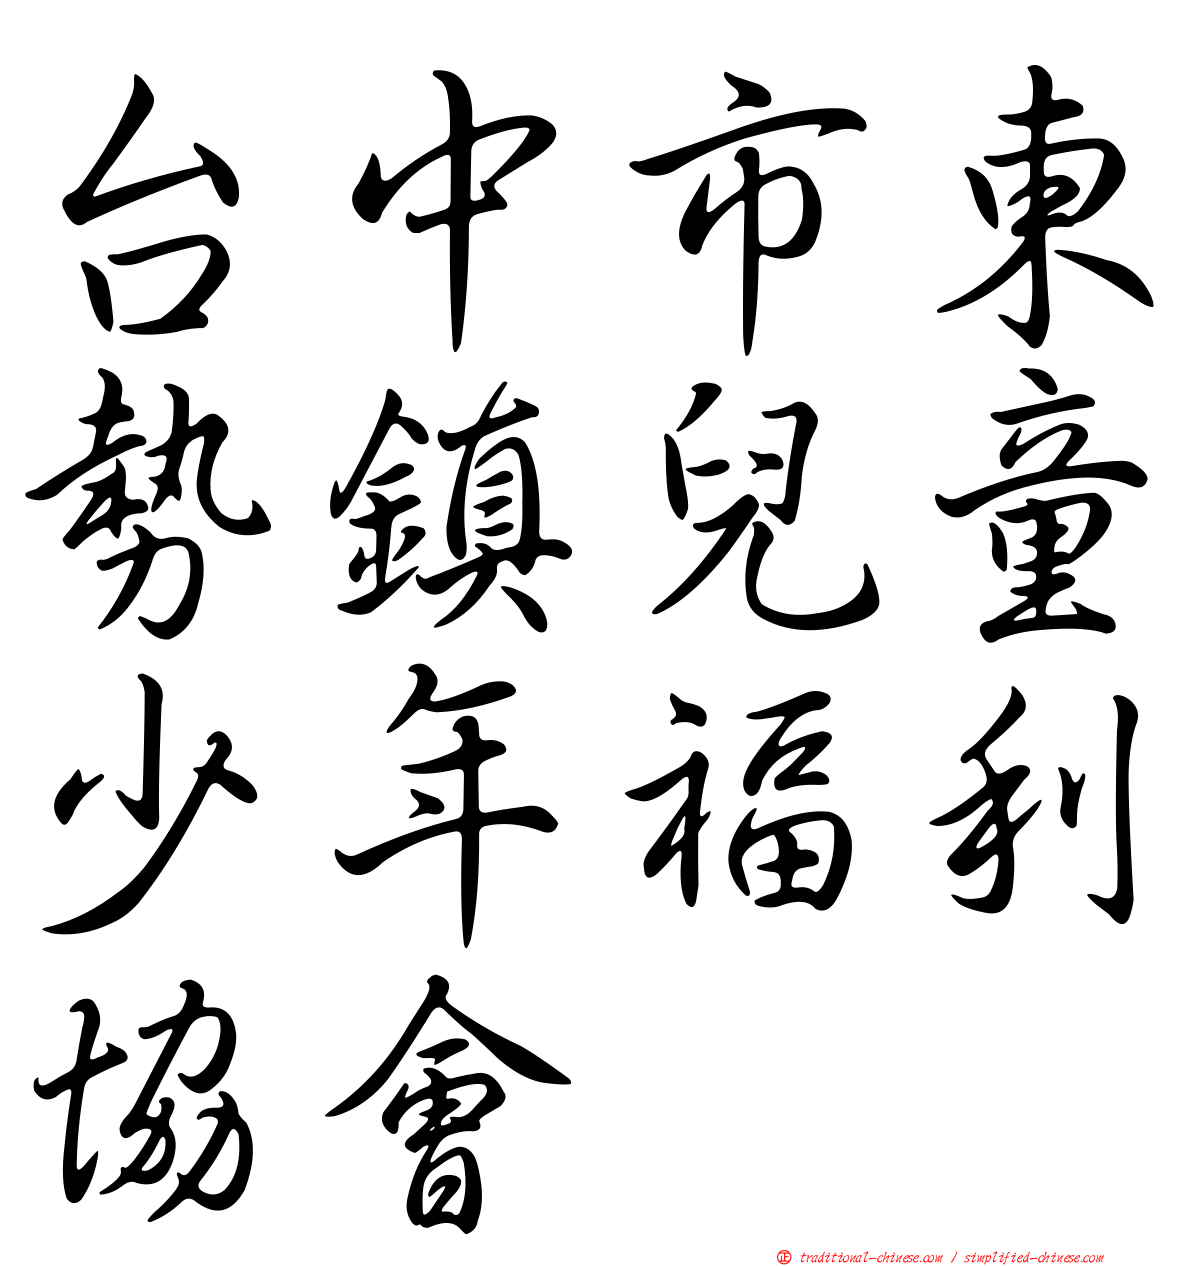 台中市東
勢鎮兒童
少年福利
協會
正 traditional-chinese.com / simplified-chinese.com